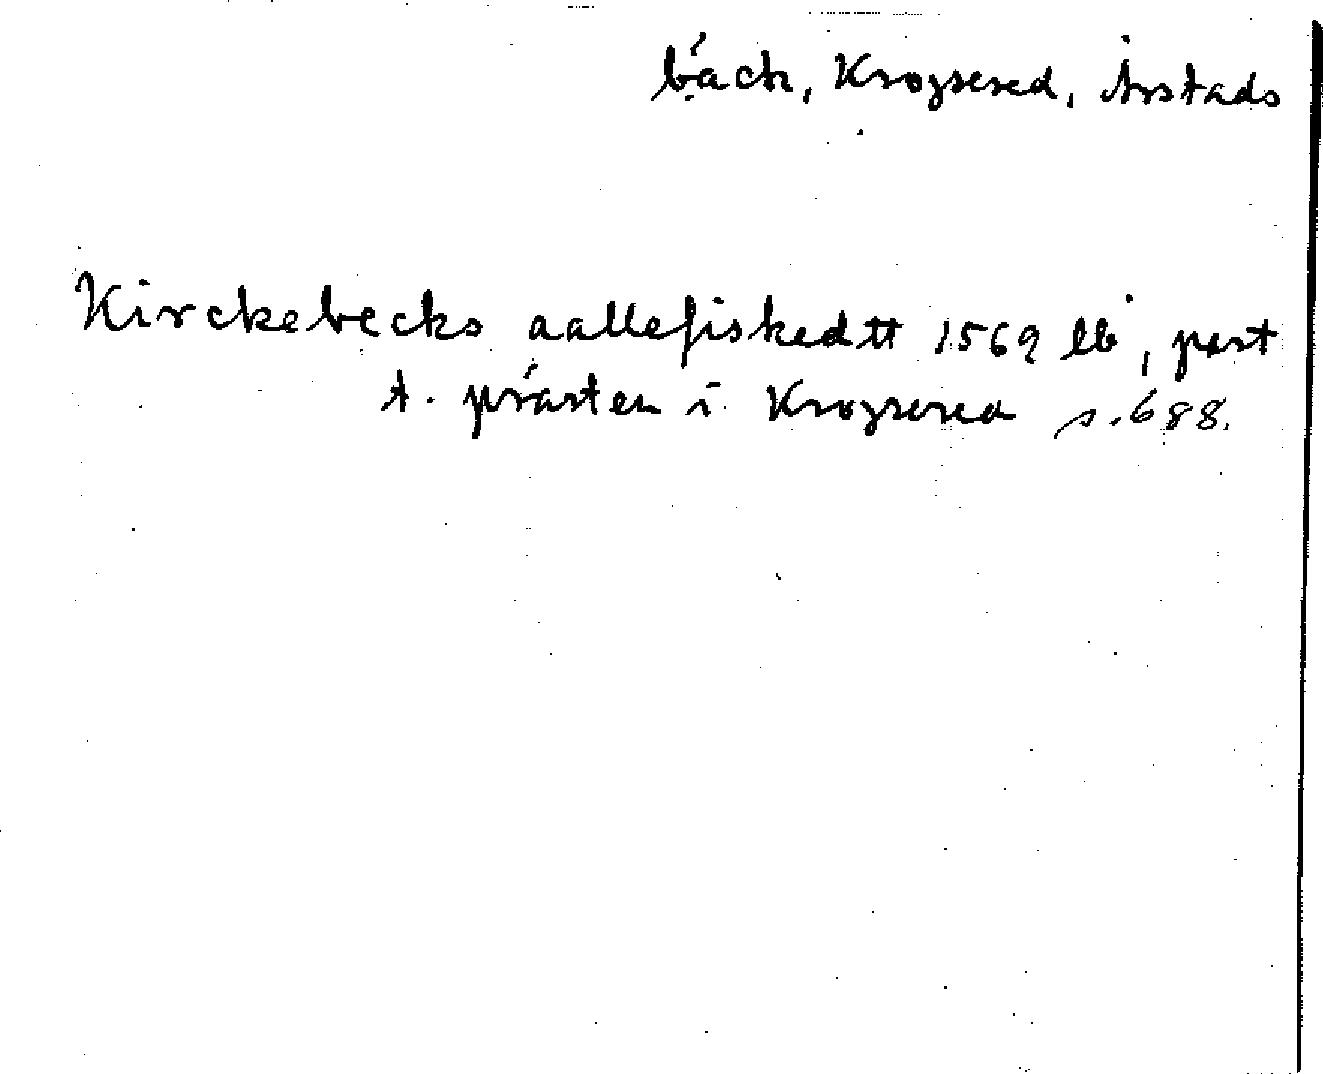 bäck, Krogsered, Årstads
Kirckebecks aallefiskedtt 1569 lb, pert
t. prästen i Krogsered s. 688.